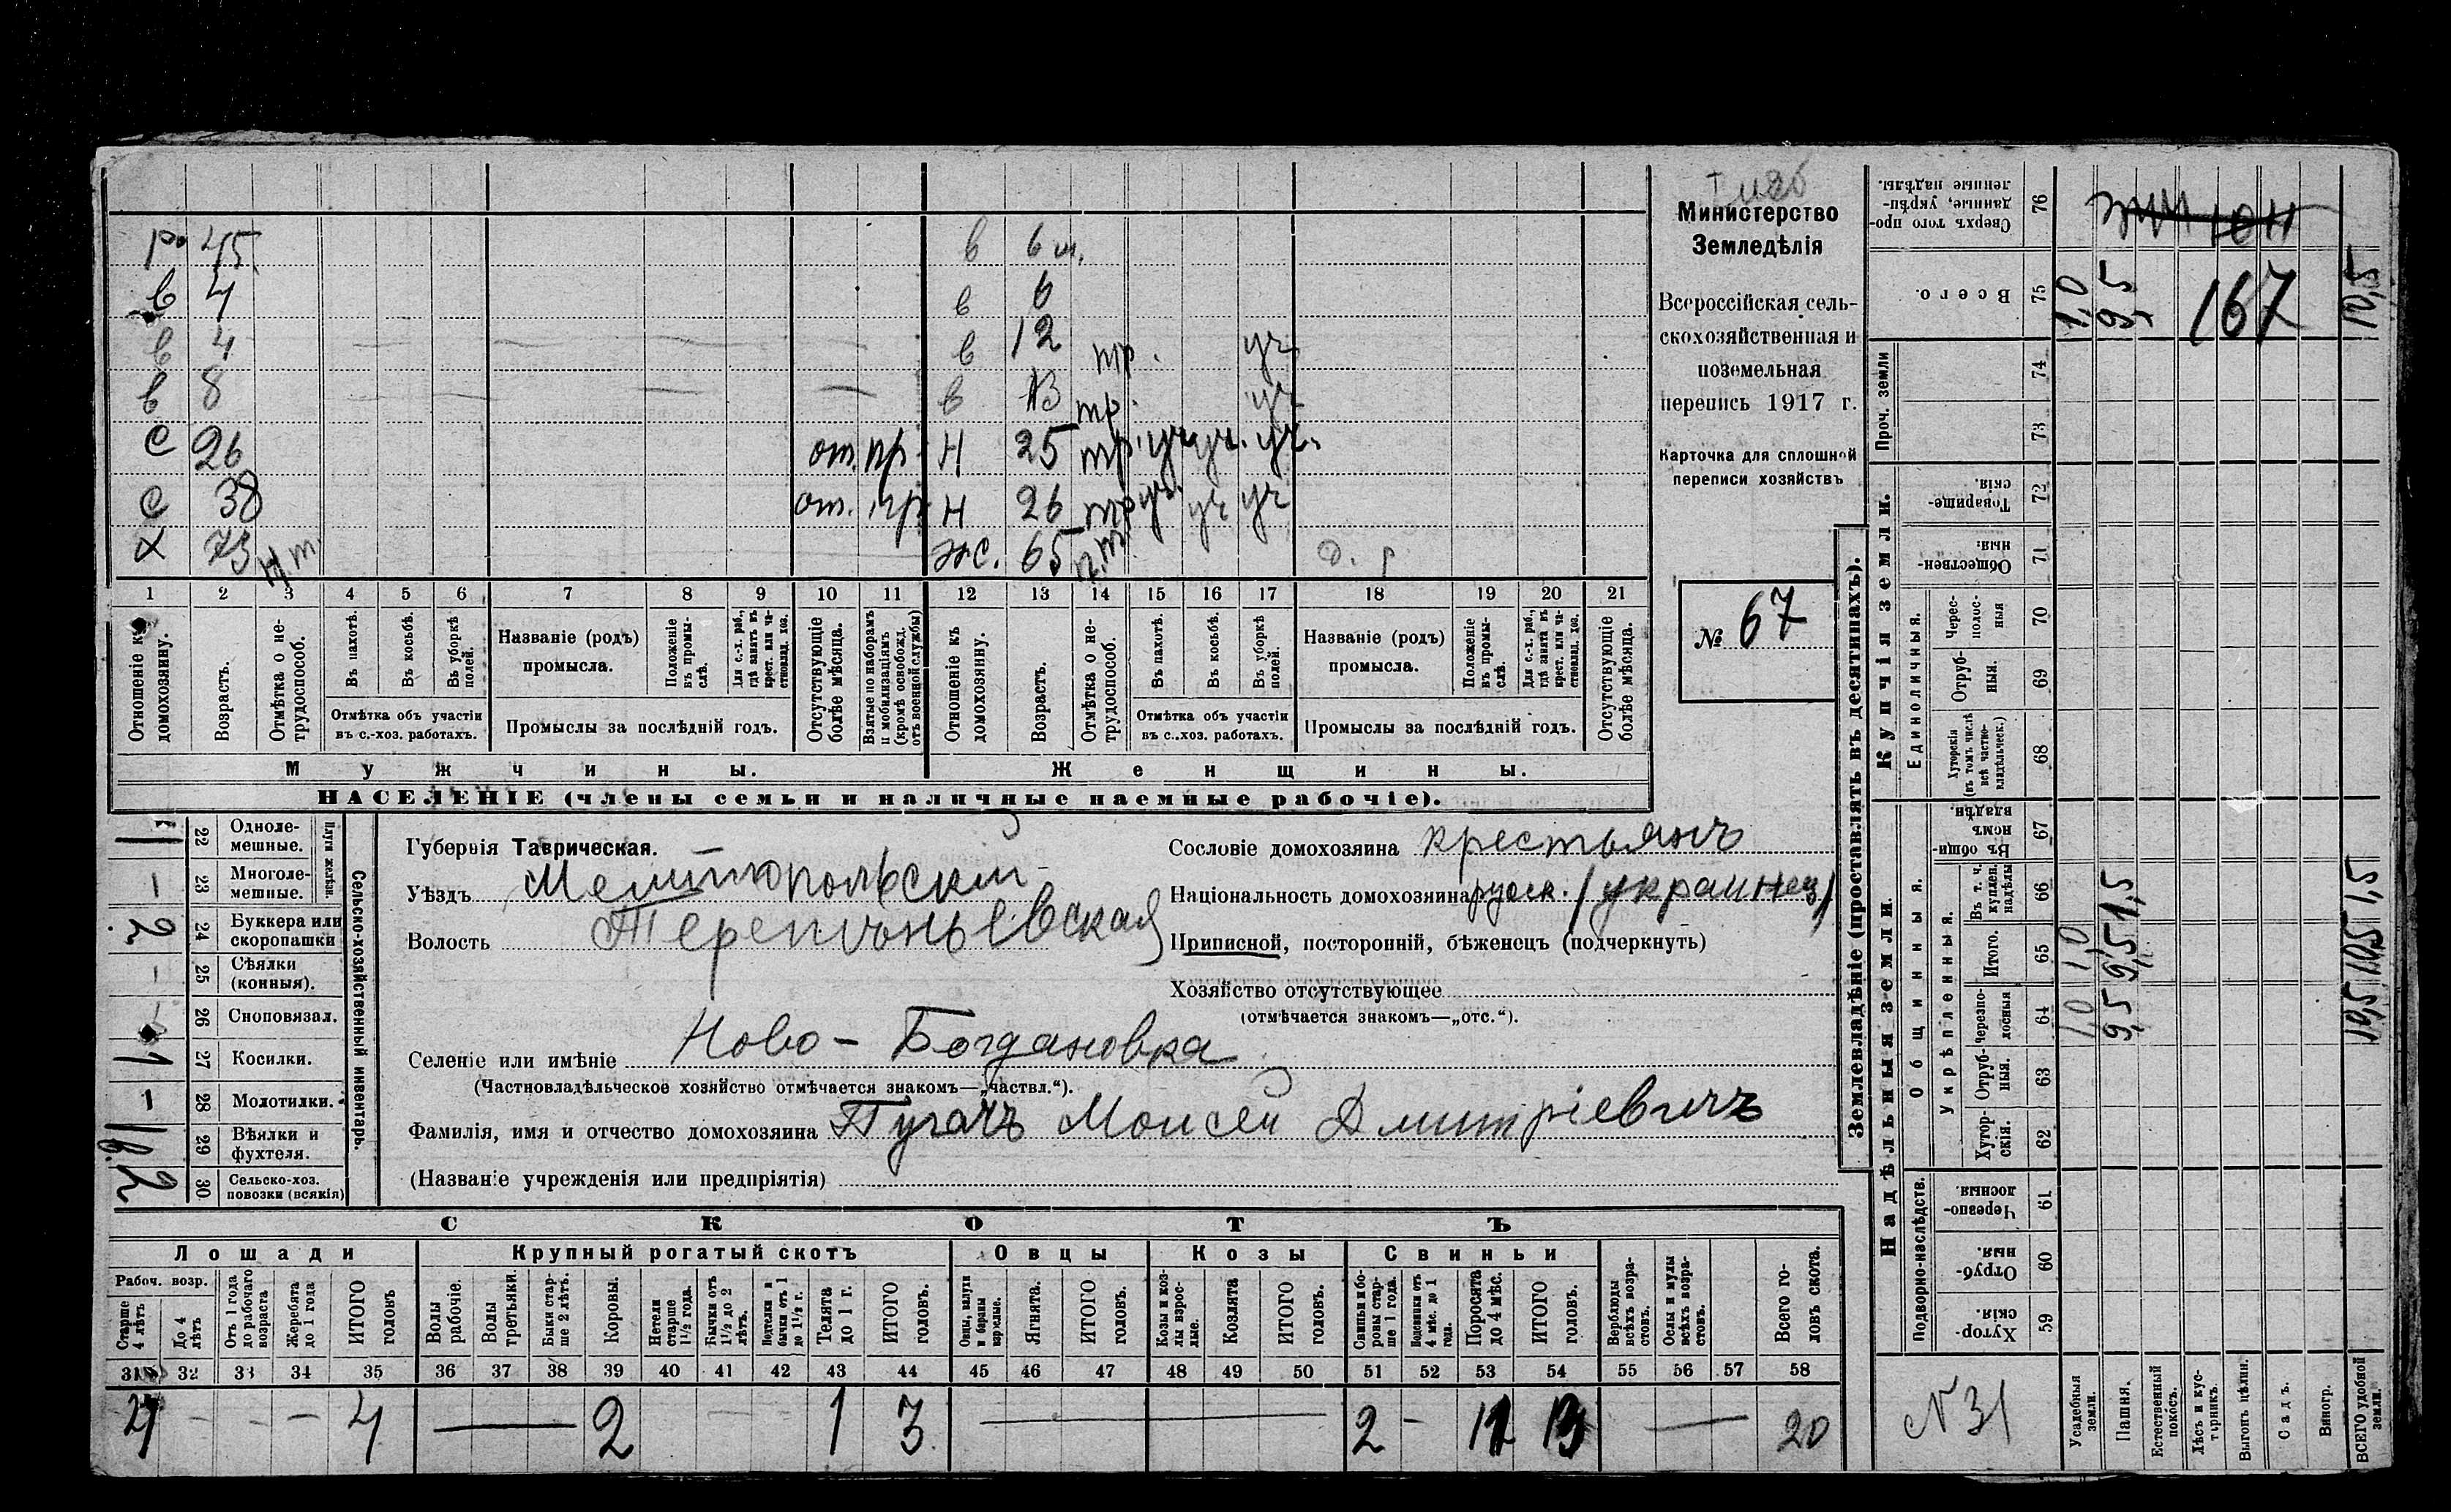 р. 45. в 6 м.
в 4 в 6
в 4 в 12 тр. уч
в 8 в 13 тр. уч
С 26 от. пр. Н 25 тр. уч уч. уч.
С 38 от. пр. Н 26 тр уч. уч уч
Х 73 н т. ж. 65 н.т. д. р
1 2 3 4 5 6 7 8 9 10 11 12 13 14 15 16 17 18 19 20 21
Отношеніе къ домохозяину.
Возрастъ.
Отмѣтка о не-трудоспособ.
Въ пахотѣ.
Въ косьбѣ.
Въ уборкѣ полей.
Отмѣтка объ участіи
въ с.-хоз. работахъ.
Названіе (родъ)
промысла.
Положеніе въ промы-слѣ.
Для с.-х. раб., гдѣ занятъ въ крест. или ча-стновлад. хоз.
Промыслы за послѣдній годъ.
Отсутствующіе болѣе мѣсяца.
Взятые по наборамъ и мобилизаціямъ (кромѣ освобожд. отъ военной службы)
Отношеніе къ домохозяину.
Возрастъ.
Отмѣтка о не-трудоспособ.
Въ пахотѣ.
Въ косьбѣ.
Въ уборкѣ полей.
Отмѣтка объ участіи
въ с..хоз. работахъ.
Названіе (родъ)
промысла.
Положеніе въ промы-слѣ.
Для с.-х. раб., гдѣ занята въ крест. или ча-стновлад. хоз.
Промыслы за послѣдній годъ.
Отсутствующіе болѣе мѣсяца.
Мужчины. Женщины.
НАСЕЛЕНІЕ (члены семьи и наличные наемные рабочіе).
Министерство
Земледѣлія
Всероссійская сель-
скохозяйственная и
поземельная
перепись 1917 г.
Карточка для сплошной
переписи хозяйствъ
№ 67
Сельско-хозяйственный инвентарь.
Плуги желѣзн.
22 Одноле-мешные. 1
23 Многоле-мешные. –
24 Буккера или скоропашки 2
25 Сѣялки (конныя). –
26 Сноповязал.
27 Косилки. 1
28 Молотилки. –
29 Вѣялки и фухтеля. 1
30 Сельско-хоз. повозки (всякія) 2
Губернія Таврическая.
Уѣздъ Мелитопольскій
Волость
Сословіе домохозяина крестьянъ
Національность домохозяина русск. /украинец/
Приписной, посторонній, бѣженецъ (подчеркнуть)
Хозяйство отсутствующее
(отмѣчается знакомъ—„отс.“).
Селеніе или имѣніе Ново-Богдановка
(Частновладѣльческое хозяйство отмѣчается знакомъ—„частвл.“).
Фамилія, имя и отчество домохозяина Пугачъ Моисей Дмитріевичъ
(Названіе учрежденія или предпріятія)
СКОТЪ
Лошади Крупный рогатый скотъ Овцы Козы Свиньи
Рабоч. возр.
Старше 4 лѣтъ
До 4 лѣтъ
Отъ 1 года до рабочаго возраста
Жеребята до 1 года
ИТОГО головъ
Волы рабочіе.
Волы третьяки.
Быки стар-ше 2 лѣтъ.
Коровы.
Нетели старше 1½ года.
Бычки отъ 1½ до 2 лѣтъ.
Подтелки и бычки отъ 1 до 1½ г.
Телята до 1 г.
ИТОГО головъ.
Овцы, валухи и бараны взрослые.
Ягнята.
ИТОГО головъ.
Козы и коз-лы взрос-лые.
Козлята
ИТОГО головъ.
Свиньи и бо-ровы стар-ше 1 года.
Подсвинки отъ 4 мѣс. до 1 года.
Поросята до 4 мѣс.
ИТОГО головъ.
Верблюды всѣхъ возра-стовъ.
Ослы и мулы всѣхъ возра-стовъ.
Всего го-ловъ скота.
31 32 33 34 35 36 37 38 39 40 41 42 43 44 45 46 47 48 49 50 51 52 53 54 55 56 57 58
4 – – – 4 — 2 – – 1 3 — 2 – — 20
Землевладѣніе (проставлять въ десятинахъ).
Купчія земли.
Проч. земли
Сверхъ того про-данные, укрѣп-ленные надѣлы. 76
Всего. 75 1,0 9,5 167 10,5
74
73
Товарище-скія. 72
Обществен-ныя: 71
Единоличныя.
Черес-полос-ныя 70
Отруб-ныя. 69
Хуторскія (въ томъ числѣ всѣ частно-владѣльческ.) 68
Надѣльныя земли.
Общинныя.
Укрѣпленныя.
Въ общин-номъ владѣн. 67
Въ т. ч. куплен. надѣлы 66 1,5 1,5
Итого. 65 1,0 9,5 10,5
Черезпо-лосныя 64 1,0 9,5 10,5
Отруб-ныя. 63
Хутор-скія. 62
Подворно-наслѣдств.
Черезпо-лосныя. 61
Отруб-ныя. 60
Хутор-скія. 59
N 31
Усадебныя земли.
Пашня.
Естественный покосъ.
Лѣсъ и кус-тарникъ.
Выгонъ цѣлин.
Садъ.
Виногр.
ВСЕГО удобной земли.